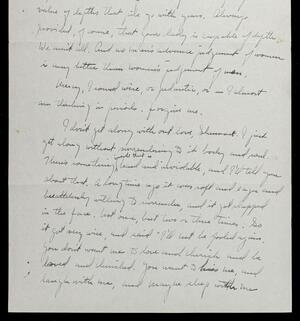 value of depths that she go with years. Always
provided, of course, that God's lady is capable of depths.
We aren't all. And no man's advance judgement of women
is any better than woman's judgement of men.
Mercy, I sound wise, or pedantic, or — I almost
am thinking in periods. Forgive me.
I don't get along without love, Shumont. I just
get along without surrendering to it body and soul.
There's something quite that is hard and invidable, and I've told you
about that. A long time ago it was soft and eager and
breathlessly willing to surrender, and it got slapped
in the face, not once, but two or three times. So
it got very wise, and said "I'll not be fooled again.
You don't want me to love and cherish and be
loved and cherished. You want to kiss me, and
laugh with me, and maybe sleep with me